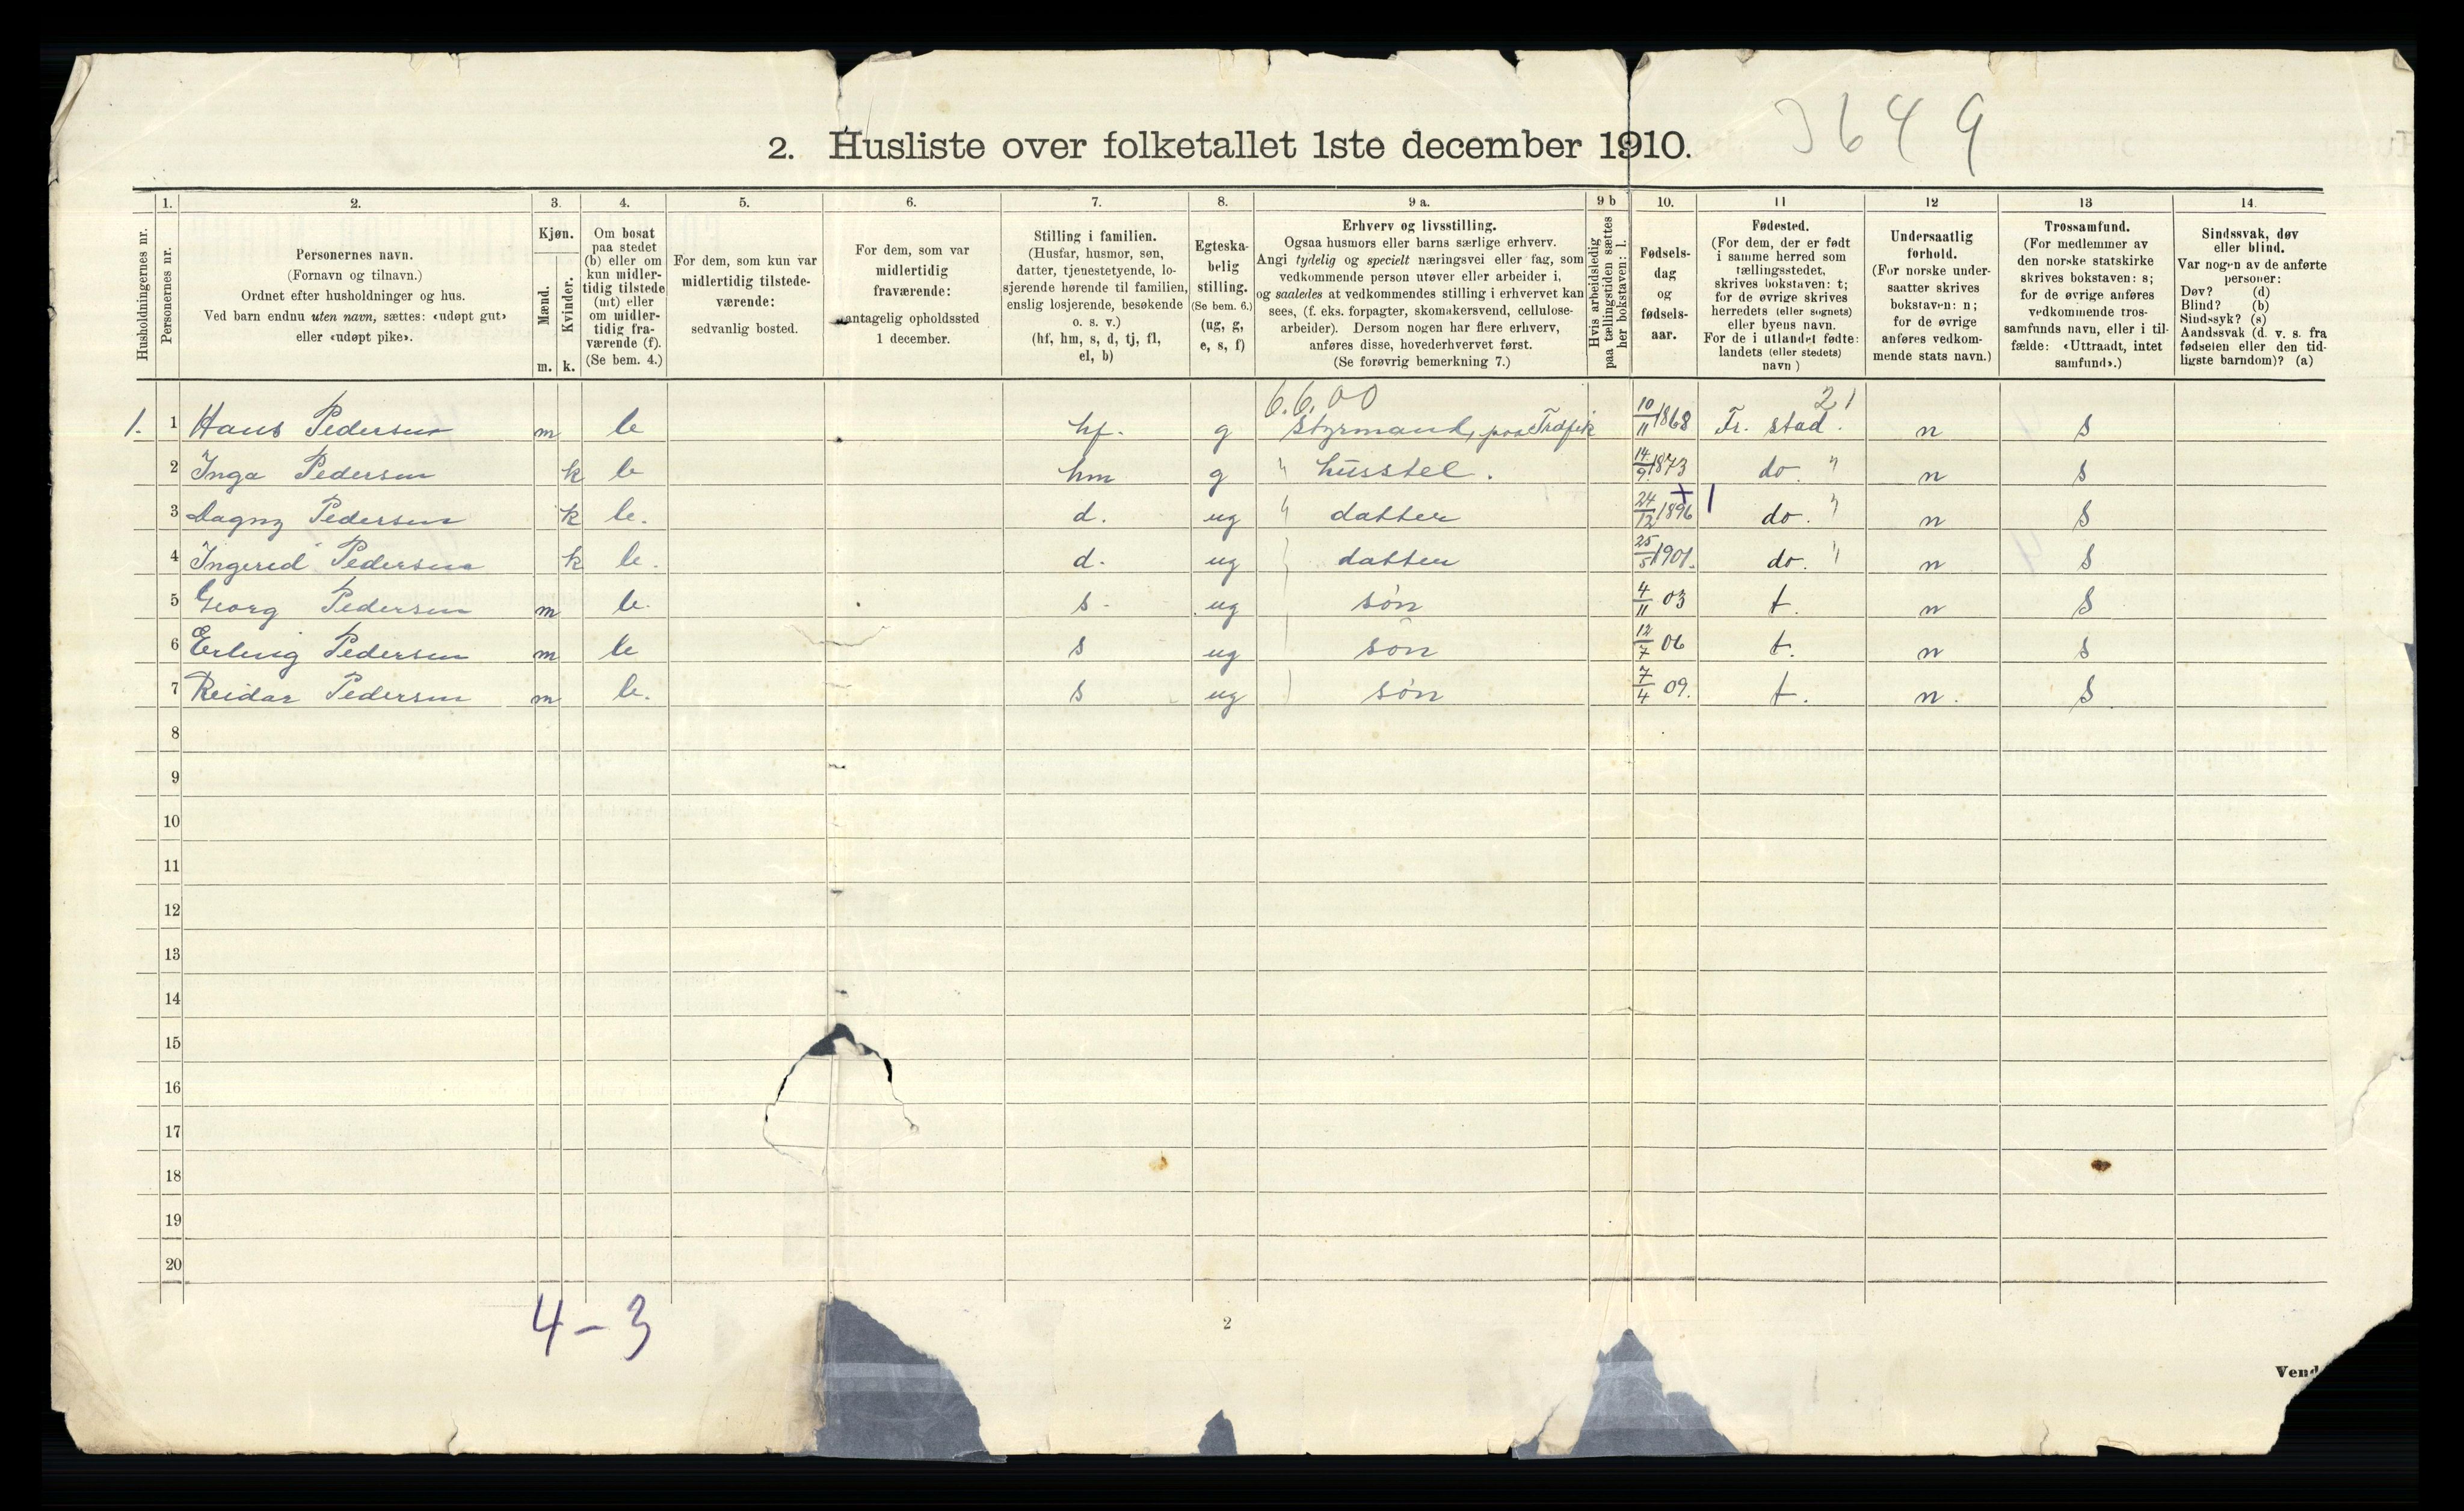 2. Husliste over folketallet 1ste december 1910.
3649
Husholdningernes nr.
1.
Personernes nr.
2.
Personernes navn.
(Fornavn og tilnavn.)
Ordnet efter husholdninger og hus.
Ved barn endnu uten navn, sættes: «udøpt gut»
eller «udøpt pike».
3.
Kjøn.
Mænd.
Kvinder.
m. k.
4.
Om bosat
paa stedet
(b) eller om
kun midler-
tidig tilstede
(mt) eller
om midler-
tidig fra-
værende (f).
(Se bem. 4.)
5.
For dem, som kun var
midlertidig tilstede-
værende:
sedvanlig bosted.
6.
For dem, som var
midlertidig
fraværende:
antagelig opholdssted
1 december.
7.
Stilling i familien.
(Husfar, husmor, søn,
datter, tjenestetyende, lo-
sjerende hørende til familien,
enslig losjerende, besøkende
o. s. v.)
(hf, hm, s, d, tj, fl,
el, b)
8.
Egteska-
belig
stilling.
(Se bem. 6.)
(ug, g,
e, s, f)
9 a.
Erhverv og livsstilling.
Ogsaa husmors eller barns særlige erhverv.
Angi tydelig og specielt næringsvei eller fag, som
vedkommende person utøver eller arbeider i,
og saaledes at vedkommendes stilling i erhvervet kan
sees, (f. eks. forpagter, skomakersvend, cellulose-
arbeider). Dersom nogen har flere erhverv,
anføres disse, hovederhvervet først.
(Se forøvrig bemerkning 7.)
9 b
Hvis arbeidsledig
paa tællingstiden sættes
her bokstaven: l.
10.
Fødsels-
dag
og
fødsels-
aar.
11
Fødested.
(For dem, der er født
i samme herred som
tællingsstedet,
skrives bokstaven: t;
for de øvrige skrives
herredets (eller sognets)
eller byens navn.
For de i utlandet fødte:
landets (eller stedets)
navn)
12
Undersaatlig
forhold.
(For norske under-
saatter skrives
bokstaven: n;
for de øvrige
anføres vedkom-
mende stats navn.)
13
Trossamfund.
(For medlemmer av
den norske statskirke
skrives bokstaven: s;
for de øvrige anføres
vedkommende tros-
samfunds navn, eller i til-
fælde: «Uttraadt, intet
samfund».)
14.
Sindssvak, døv
eller blind.
Var nogen av de anførte
personer:
Døv? (d)
Blind? (b)
Sindssyk? (s)
Aandssvak (d. v. s. fra
fødselen eller den tid-
ligste barndom)? (a)
6.6.00 21
1. 1 Hans Pedersen m b hf. g Styrmand, paa Trafik 10/11 1868 Fr. stad. n s
2 Inga Pedersen k b hm g " husstel. 14/9 1873 do. " n s
+ 1
3 Dagny Pedersen k b. d. ug " datter 24/12 1896 do. " n s
4 Ingerid Pedersen k b. d. ug " datter 25/5 1901. do. " n s
5 Georg Pedersen m b. s. ug " søn 4/11 03 t. n s
6 Erling Pedersen m b s ug " søn 12/7 06 t. n s
7 Reidar Pedersen m b. s ug " søn 7/4 09. t. n. s.
8
9
10
11
12
13
14
15
16
17
18
19
20
4-3
2
Vend